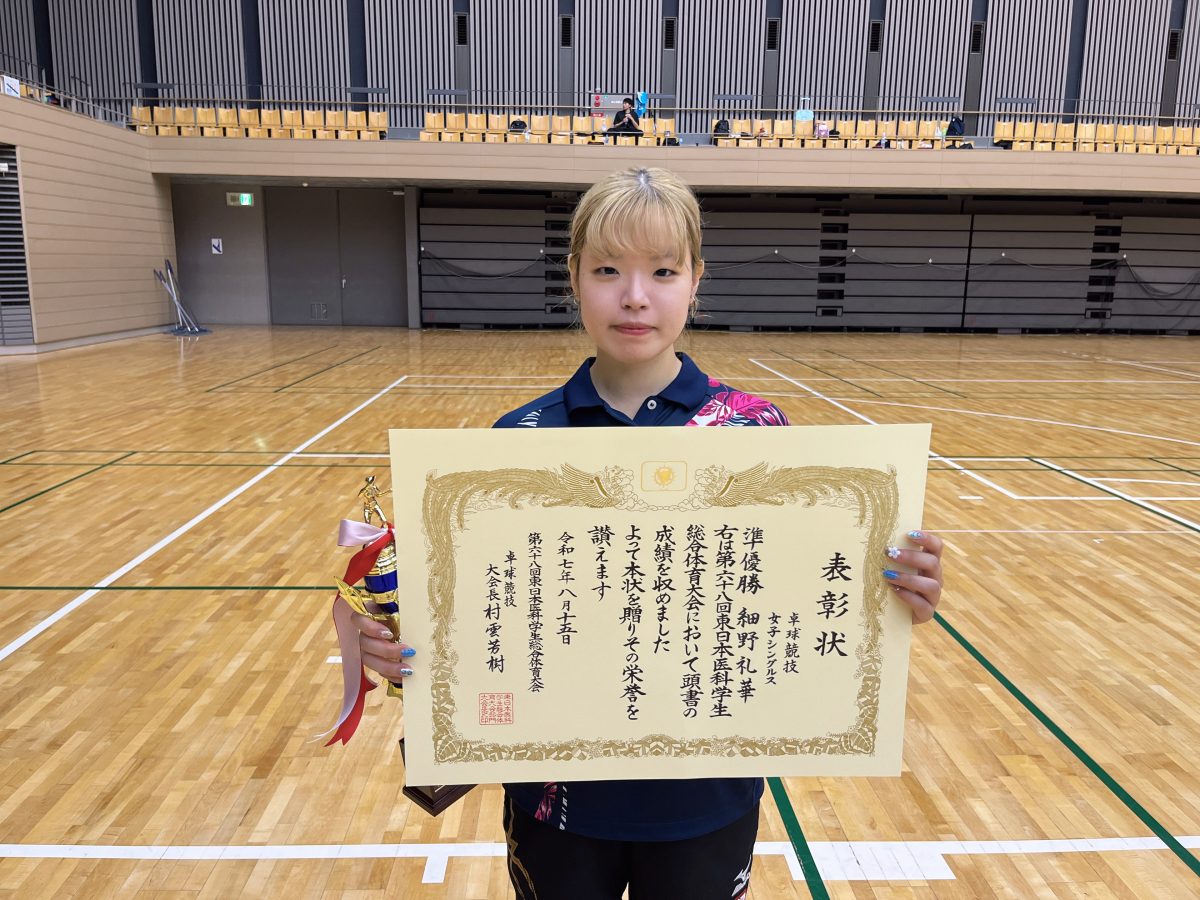 表彰状
卓球競技
女子シングルス
準優勝 細野礼華
右は第六十八回東日本医科学生
総合体育大会において頭書の
成績を収めました
よって本状を贈りその栄誉を
讃えます
令和七年八月十五日
第六十八回東日本医科学生総合体育大会
卓球競技
大会長 村雲芳樹